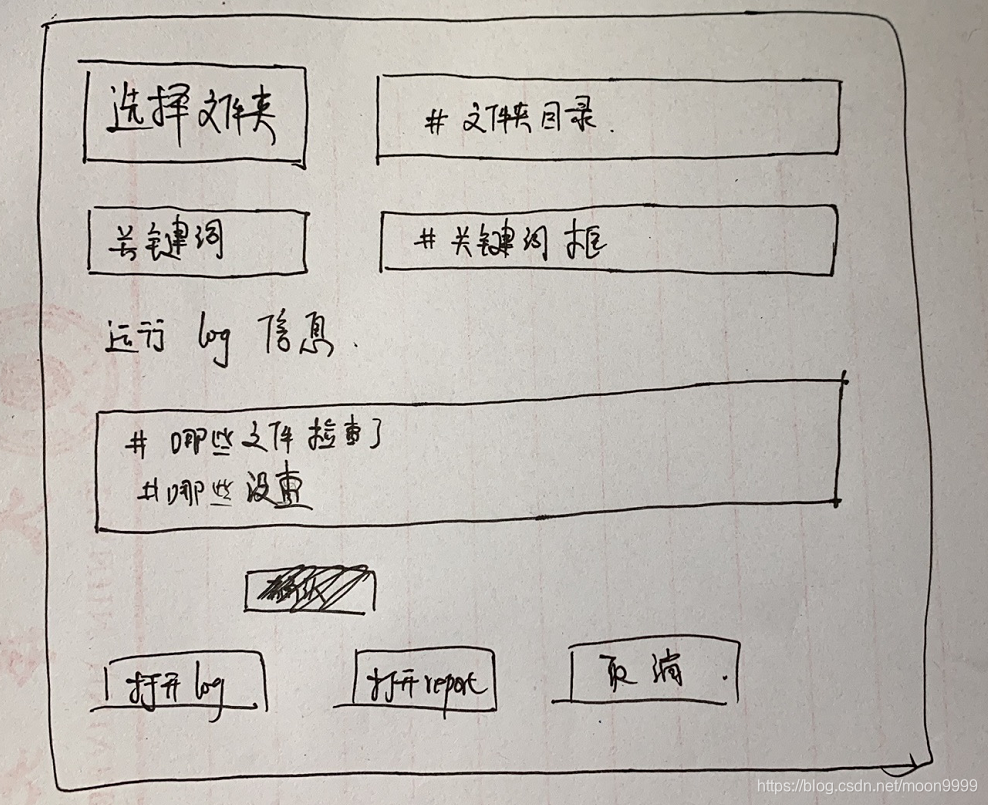 选择文件夹
# 文件夹目录.
关键词
# 关键词框
运行 log 信息.
# 哪些文件检查了
# 哪些没查
打开 log
打开 report
取消.
https://blog.csdn.net/moon9999